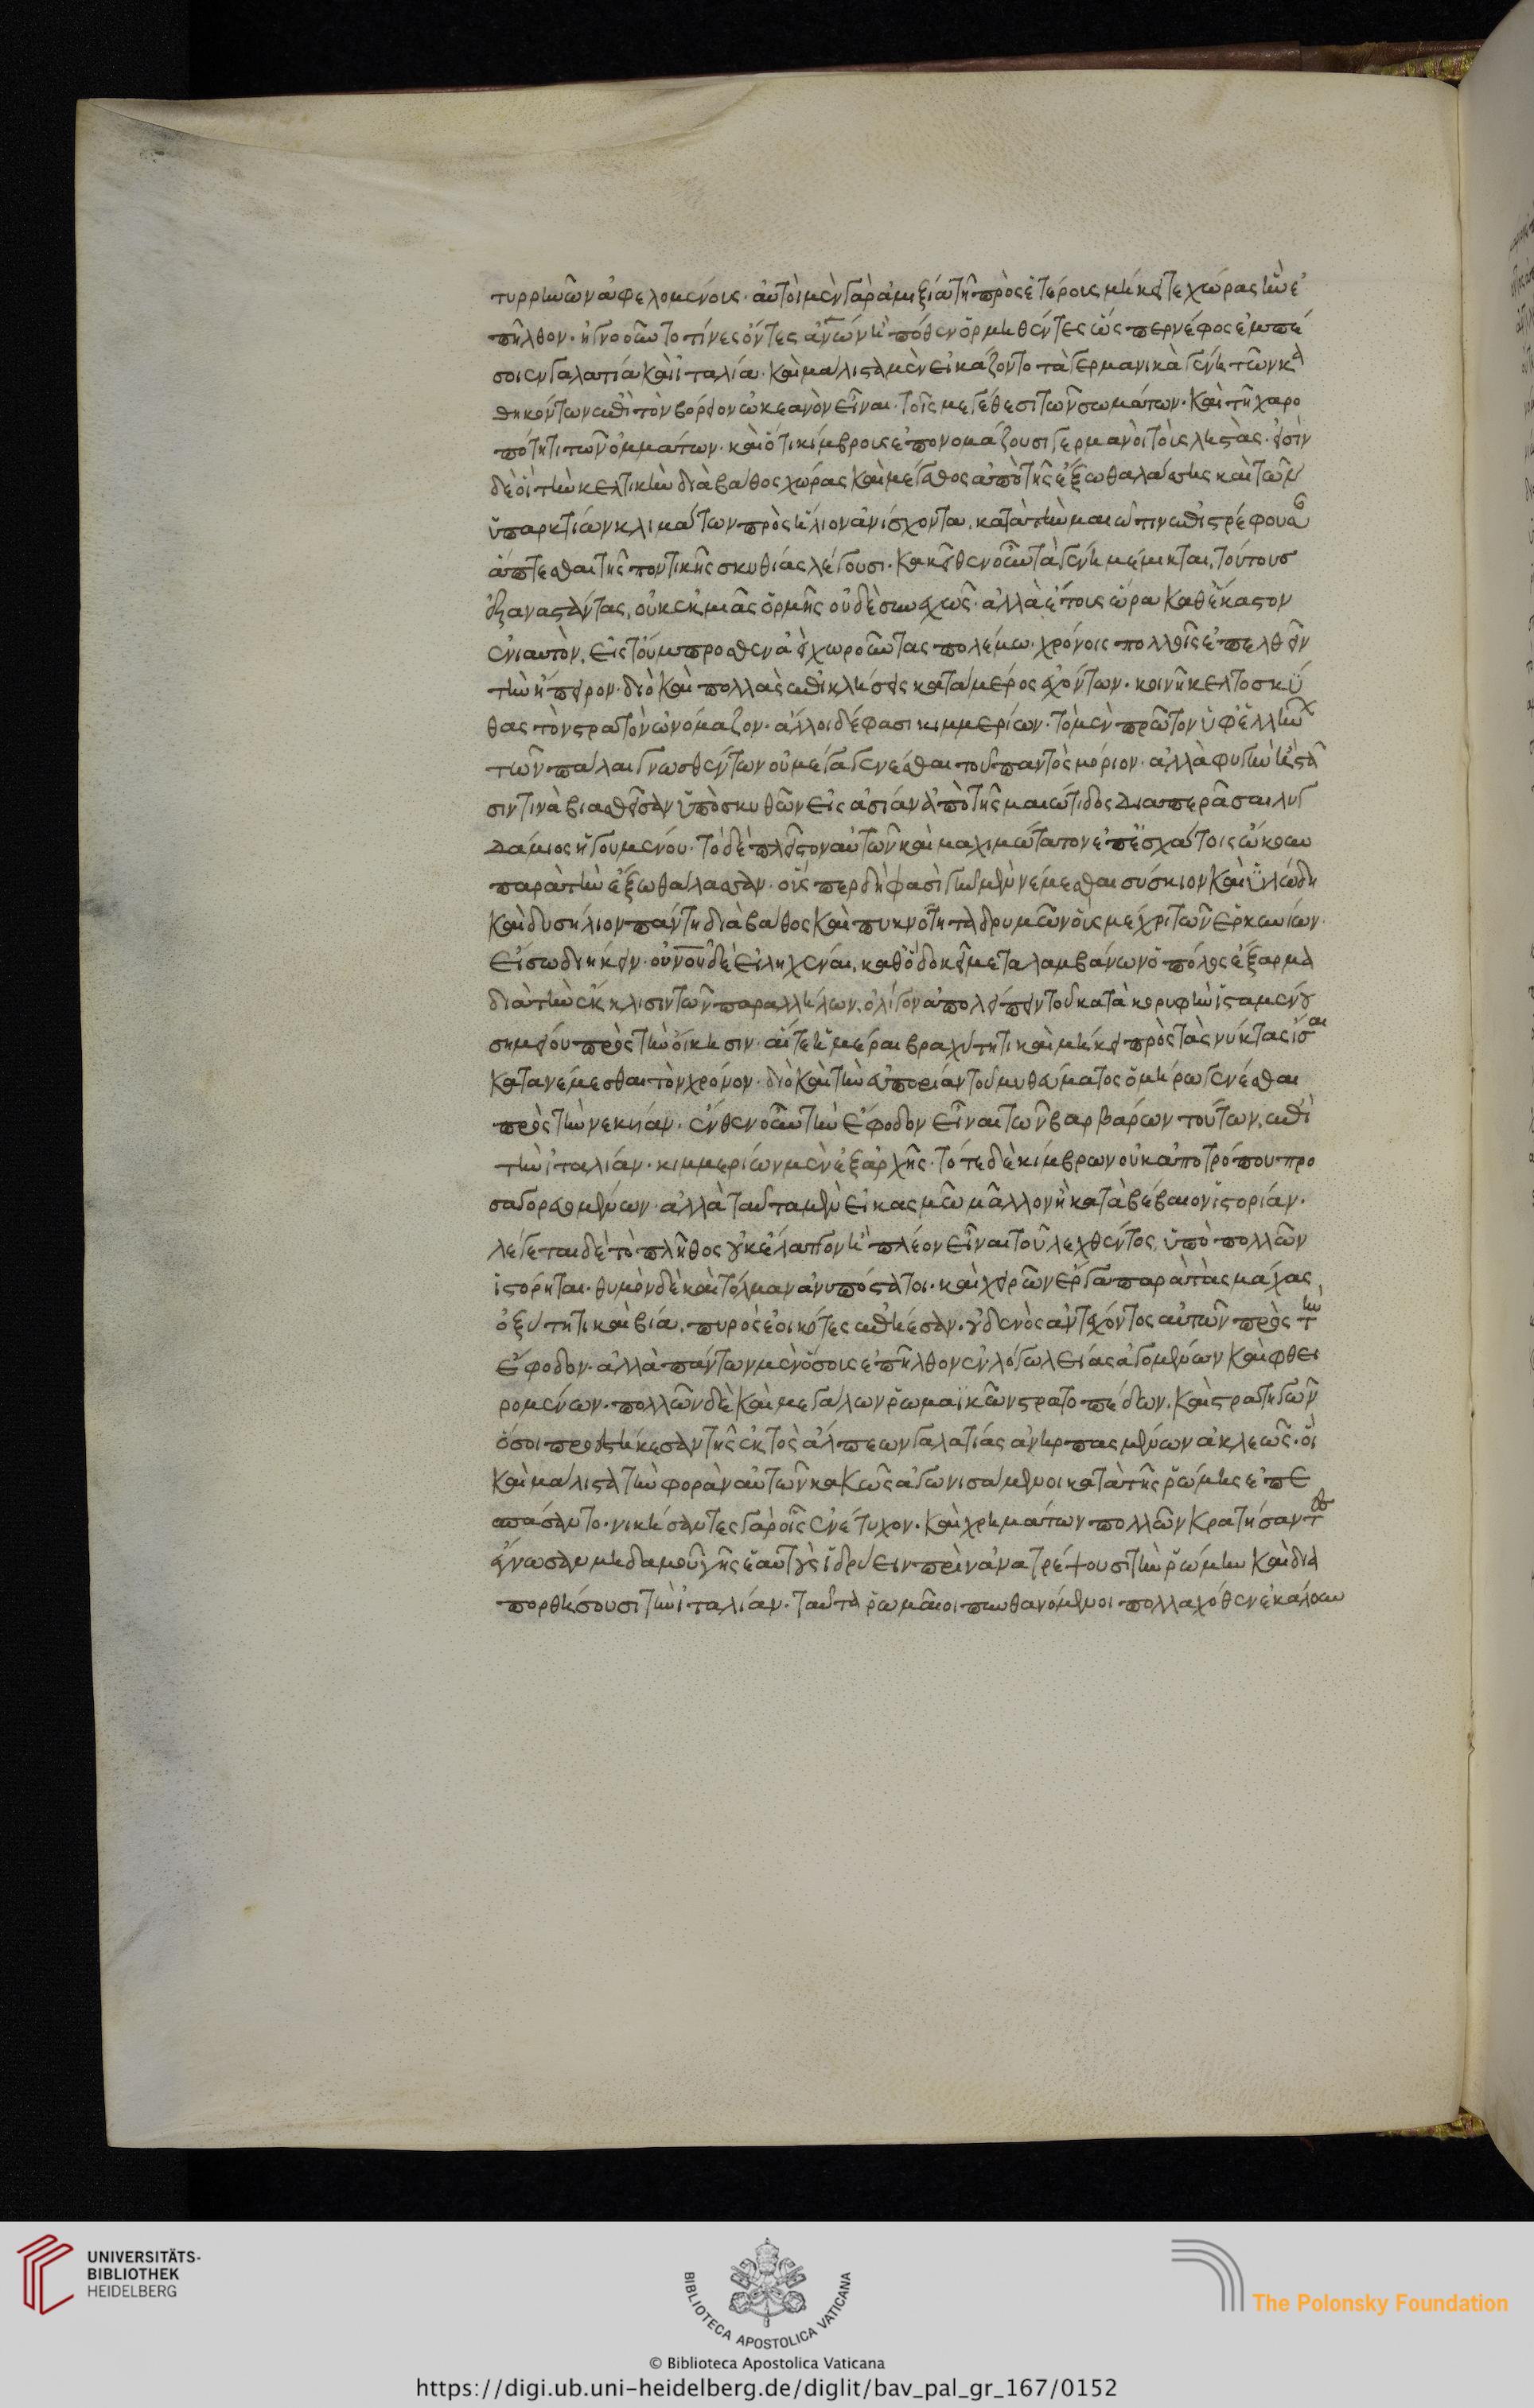 τυρρηνῶν ἀφελομένους· αὐτοὶ μὲν γὰρ ἀμιξίᾳ τῇ πρὸς ἑτέρους μήκει τε χώρας ἣν ἐ
πῆλθον· ἠγνοοῦντο τίνες ὄντες ἀνθρώπων ἢ πόθεν ὁρμηθέντες ὥσπερ νέφος ἐμπέ
σοιεν γαλατίᾳ καὶ ἰταλίᾳ· καὶ μάλιστα μὲν εἰκάζοντο τὰ γερμανικὰ γένη τῶν κα
θηκόντων ἐπὶ τὸν βόρειον ὠκεανὸν εἶναι· τοῖς μεγέθεσι τῶν σωμάτων· καὶ τῇ χαρο
πότητι τῶν ὀμμάτων· καὶ ὅτι κίμβρους ἐπονομάζουσι γερμανοὶ τοὺς λῃστάς· εἰσὶν
δὲ οἳ τὴν κελτικὴν διὰ βάθος χώρας καὶ μέγεθος ἀπὸ τῆς ἔξω θαλάττης καὶ τῶν
ὑπαρκτίων κλιμάτων πρὸς ἥλιον ἀνίσχοντα, κατὰ τὴν μαιῶτιν ἐπιστρέφουσαν
ἅπτεσθαι τῆς ποντικῆς σκυθίας λέγουσι· κἀκεῖθεν οὖν τὰ γένη μέμικται, τούτους
ἐξαναστάντας, οὐκ ἐκ μιᾶς ὁρμῆς οὐδὲ συνεχῶς· ἀλλὰ ἔτους ὥρᾳ καθ' ἕκαστον
ἐνιαυτὸν, εἰς τοὔμπροσθεν ἀεὶ χωροῦντας πολέμῳ· χρόνοις πολλοῖς ἐπελθεῖν
τὴν ἤπειρον· διὸ καὶ πολλὰς ἐπικλήσεις κατὰ μέρος ἐχόντων· κοινῇ κελτοσκύ
θας τὸν στρατὸν ὠνόμαζον· ἄλλοι δέ φασι κιμμερίων· τὸ μὲν πρῶτον ὑφ' ἑλλήνων
τῶν πάλαι γνωσθέντων οὐ μέγα γενέσθαι τοῦ παντὸς μόριον· ἀλλὰ φυγὴν ἢ στά
σιν τινὰ βιασθεῖσαν ὑπὸ σκυθῶν εἰς ἀσίαν ἀπὸ τῆς μαιώτιδος διαπερᾶσαι λυγ
δάμιος ἡγουμένου· τὸ δὲ πλεῖστον αὐτῶν καὶ μαχιμώτατον ἐπ' ἐσχάτοις ᾤκουν
παρὰ τὴν ἔξω θάλασσαν· οἵσπερ δή φασὶ γῆν μὲν νέμεσθαι σύσκιον καὶ ὑλώδη
καὶ δυσήλιον πάντῃ διὰ βάθος καὶ πυκνότητα δρυμῶν οὓς μέχρι τῶν ἑρκυνίων
εἴσω διήκειν· οὐνοῦ δὲ εἰληχέναι, καθ' ὃ δοκεῖ μεταλαμβάνων ὁ πόλος ἔξαρμα
διὰ τὴν ἔκκλισιν τῶν παραλλήλων, ὀλίγον ἀπολείπειν τοῦ κατὰ κορυφὴν ἱσταμένου
σημείου πρὸς τὴν οἴκησιν· αἵ τε ἡμέραι βραχύτητι καὶ μήκει πρὸς τὰς νύκτας ἴσαι
κατανέμεσθαι τὸν χρόνον· διὸ καὶ τὴν ἀπορίαν τοῦ μυθεύματος ὁμήρῳ γενέσθαι
πρὸς τὴν νεκυίαν· ἔνθεν οὖν τὴν ἔφοδον εἶναι τῶν βαρβάρων τούτων, ἐπὶ
τὴν ἰταλίαν· κιμμερίων μὲν ἐξ ἀρχῆς· τότε δὲ κίμβρων οὐκ ἀπὸ τρόπου προ
σαγορευομένων· ἀλλὰ ταῦτα μὲν εἰκασμῷ μᾶλλον ἢ κατὰ βέβαιον ἱστορίαν·
λέγεται δὲ τὸ πλῆθος οὐκ ἔλαττον ἢ πλέον εἶναι τοῦ λεχθέντος, ὑπὸ πολλῶν
ἱστόρηται· θυμὸν δὲ καὶ τόλμαν ἀνυπόστατοι· καὶ χειρῶν ἔργα παρὰ τὰς μάχας
ὀξύτητι καὶ βίᾳ, πυρὸς ἐοικότες ἐπῄεσαν· οὐδενὸς ἀντέχοντος αὐτῶν πρὸς τὴν
ἔφοδον· ἀλλὰ πάντων μὲν ὅσοις ἐπῆλθον ἐν λόγῳ λείας ἀγομένων καὶ φθει
ρομένων· πολλῶν δὲ καὶ μεγάλων ῥωμαϊκῶν στρατοπέδων, καὶ στρατηγῶν
ὅσοι προεκάθηντο τῆς ἐκτὸς ἄλπεων γαλατίας ἀνηρπασμένων ἀκλεῶς· οἳ
καὶ μάλιστα τὴν φορὰν αὐτῶν κακῶς ἀγωνισάμενοι κατὰ τῆς ῥώμης ἐπε
σπάσαντο· νικήσαντες γὰρ οἷς ἐνέτυχον· καὶ χρημάτων πολλῶν κρατήσαντες
ἔγνωσαν μηδαμοῦ γῆς ἑαυτοὺς ἱδρύειν πρὶν ἀνατρέψουσι τὴν ῥώμην καὶ δια
πορθήσουσι τὴν ἰταλίαν· ταῦτα ῥωμαῖοι πυνθανόμενοι πολλαχόθεν ἐκάλουν
UNIVERSITÄTS-
BIBLIOTHEK
HEIDELBERG
BIBLIOTECA APOSTOLICA VATICANA
The Polonsky Foundation
© Biblioteca Apostolica Vaticana
https://digi.ub.uni-heidelberg.de/diglit/bav_pal_gr_167/0152